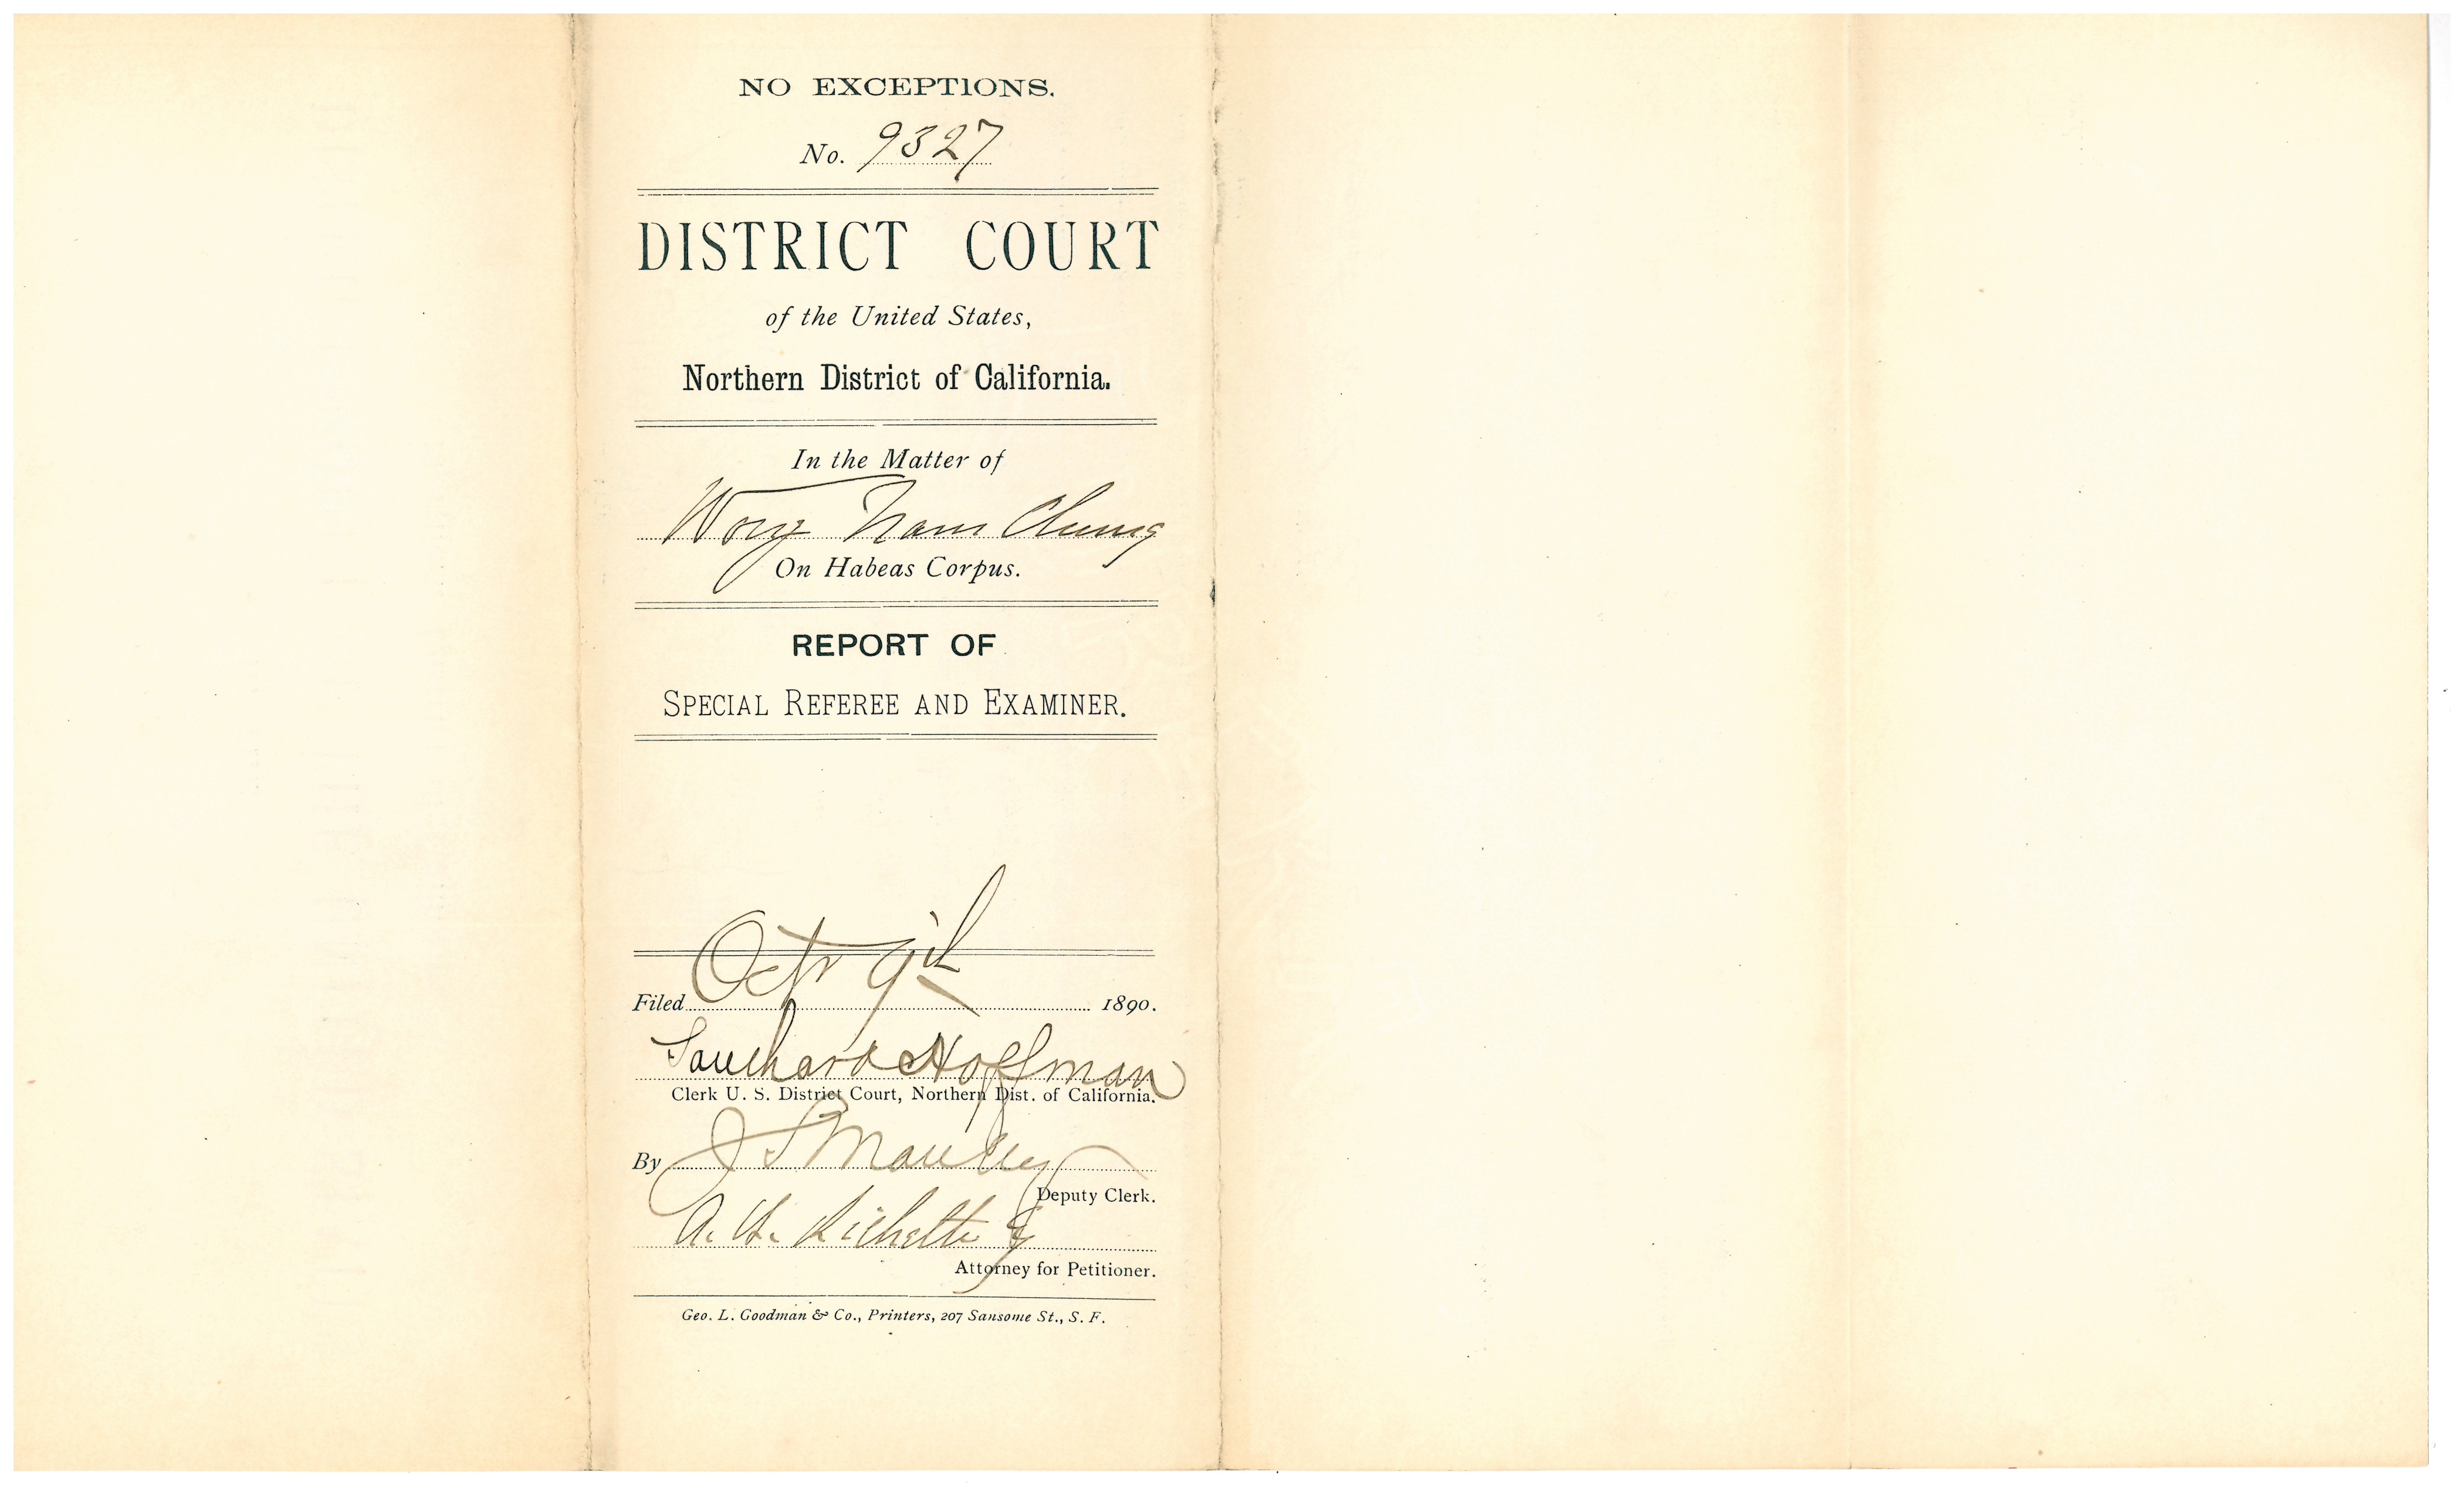 NO EXCEPTIONS.
No. 9327
DISTRICT COURT
of the United States,
Northern District of California.
In the Matter of
Wong Nam Chung
On Habeas Corpus.
REPORT OF
SPECIAL REFEREE AND EXAMINER.
Filed Octr 9th 1890.
Southard Hoffman
Clerk U. S. District Court, Northern Dist. of California.
By J S Manley
Deputy Clerk.
A. H. Ricketts
Attorney for Petitioner.
Geo. L. Goodman & Co., Printers, 207 Sansome St., S. F.